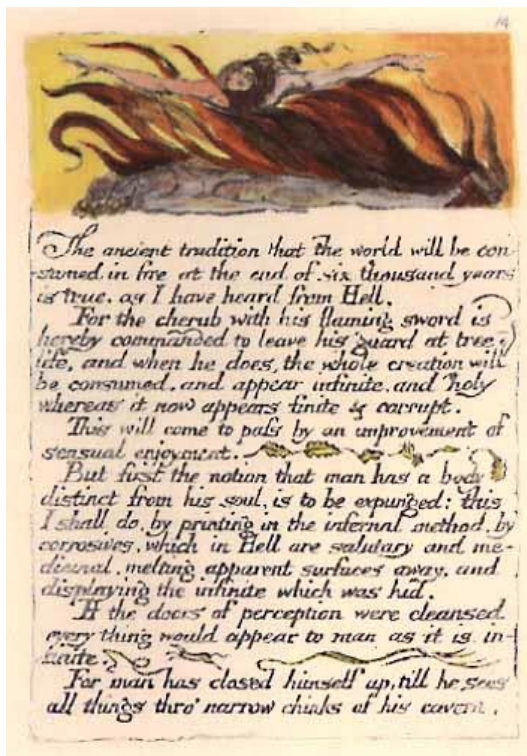 14
The ancient tradition that the world will be con-
sumed in fire at the end of six thousand years
is true. as I have heard from Hell.
For the cherub with his flaming sword is
hereby commanded to leave his guard at tree of
life, and when he does, the whole creation will
be consumed, and appear infinite. and holy
whereas it now appears finite & corrupt.
This will come to paſs by an improvement of
sensual enjoyment.
But first the notion that man has a body
distinct from his soul, is to be expunged: this
I shall do, by printing in the infernal method, by
corrosives, which in Hell are salutary and me-
dicinal, melting apparent surfaces away, and
displaying the infinite which was hid.
If the doors of perception were cleansed
every thing would appear to man as it is in-
finite.
For man has closed himself up, till he sees
all things thro' narrow chinks of his cavern.